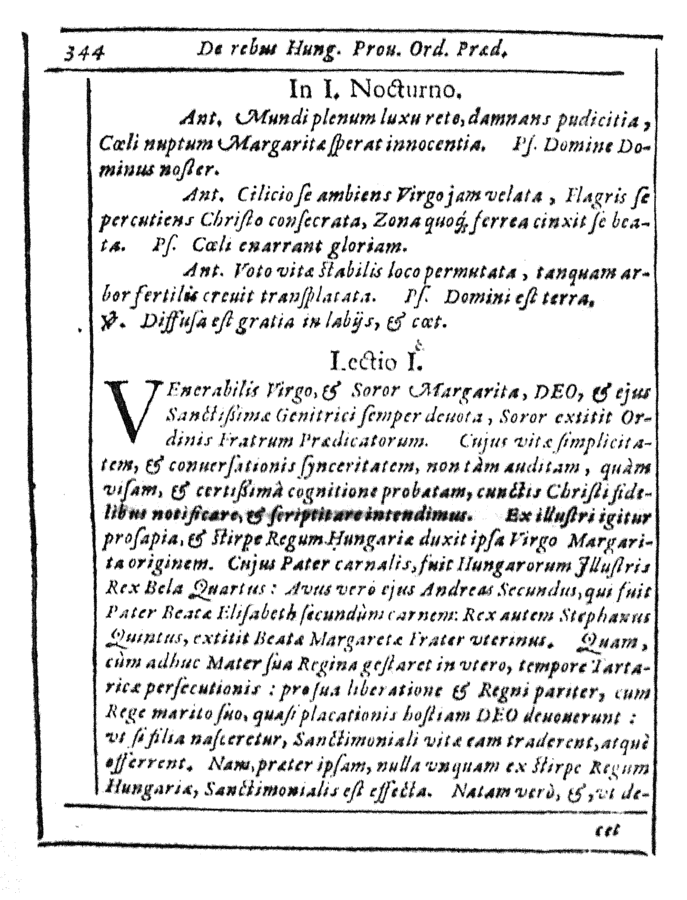 344 De rebus Hung. Prou. Ord. Præd.
In I. Nocturno.
Ant. Mundi plenum luxu reto, damnans pudicitia,
Cœli nuptum Margarita sperat innocentia. Ps. Domine Do-
minus noster.
Ant. Cilicio se ambiens Virgo jam velata, Flagris se
percutiens Christo consecrata, Zona quoq; ferrea cinxit se bea-
ta. Ps. Cœli enarrant gloriam.
Ant. Voto vitæ stabilis loco permutata, tanquam ar-
bor fertilis creuit transplãtata. Ps. Domini est terra.
℣. Diffusa est gratia in labijs, & cœt.
Lectio I.
VEnerabilis Virgo, & Soror Margarita, DEO, & ejus
Sanctissimæ Genitrici semper deuota, Soror extitit Or-
dinis Fratrum Prædicatorum. Cujus vitæ simplicita-
tem, & conuersationis synceritatem, non tàm auditam, quàm
visam, & certissimâ cognitione probatam, cunctis Christi fide-
libus notificare, & scriptitare intendimus. Ex illustri igitur
prosapia, & stirpe Regum Hungariæ duxit ipsa Virgo Margari-
ta originem. Cujus Pater carnalis, fuit Hungarorum Illustris
Rex Bela Quartus: Avus verò ejus Andreas Secundus, qui fuit
Pater Beatæ Elisabeth secundùm carnem: Rex autem Stephanus
Quintus, extitit Beatæ Margaretæ Frater vterinus. Quam,
cùm adhuc Mater sua Regina gestaret in vtero, tempore Tarta-
ricæ persecutionis: pro sua liberatione & Regni pariter, cum
Rege marito suo, quasi placationis hostiam DEO deuouerunt:
vt si filia nasceretur, Sanctimoniali vitæ eam traderent, atquè
offerrent. Nam, præter ipsam, nulla vnquam ex stirpe Regum
Hungariæ, Sanctimonialis est effecta. Natam verò, &, vt de-
cet